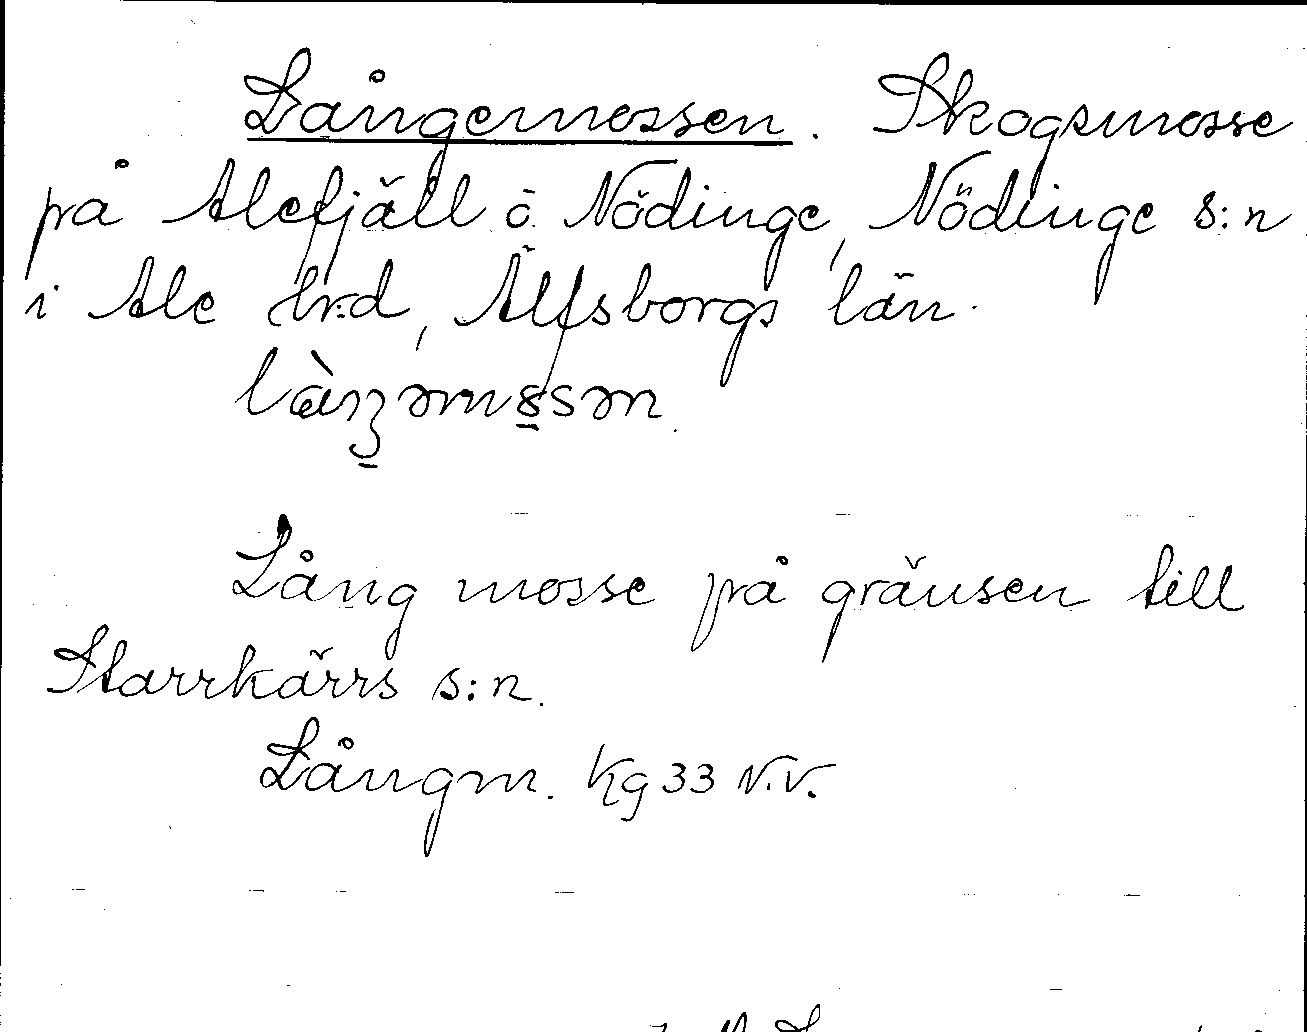 Långemossen. Skogsmosse
på Alefjäll ö. Nödinge, Nödinge s:n
i Ale hrd, Älfsborgs län.
Lång mosse på gränsen till
Starrkärrs s:n.
Långm. Kg 33 N.V.